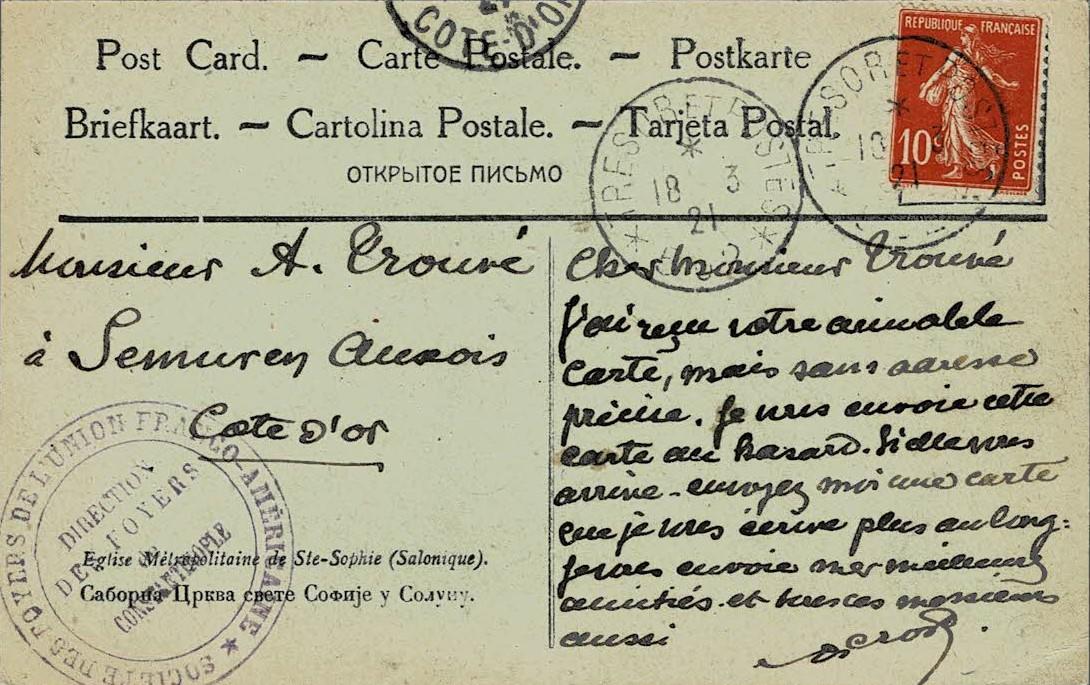 COTE-D'OR
Post Card. ~ Carte Postale. ~ Postkarte
Briefkaart. ~ Cartolina Postale. ~ Tarjeta Postal.
ОТКРЫТОЕ ПИСЬМО
REPUBLIQUE FRANÇAISE
10
POSTES
TRESOR ET POSTES
18 3
21
TRESOR ET POSTES
18 3
21
Monsieur A. Trouvé
à Semur en Auxois
Cote d'or
Cher Monsieur Trouvé
J'ai reçu votre aimable
carte, mais sans adresse
précise. Je vous envoie cette
carte au hasard. Si elle vous
arrive - envoyez moi une carte
que je vous écrive plus au long:
Je vous envoie mes meilleures
amitiés et tous ces messieurs
aussi
SOCIÉTÉ DES FOYERS DE L'UNION FRANCO-AMÉRICAINE
DIRECTION
DES FOYERS
DE
CONSTANTINOPLE
Eglise Métropolitaine de Ste-Sophie (Salonique).
Саборна Црква свете Софије у Солуну.